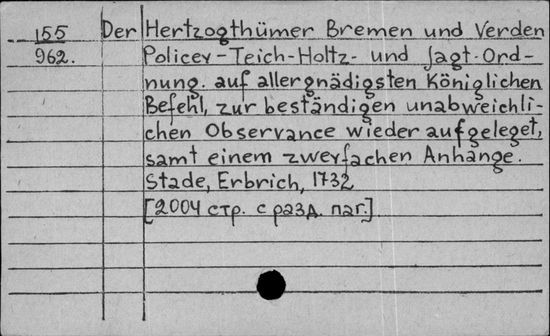 155 Der Hertzogthümer Bremen und Verden
962. Policey-Teich-Holtz- und Jagt-Ord-
nung. auf allergnädigsten Königlichen
Befehl, zur beständigen unabweichli-
chen Observance wieder aufgeleget,
samt einem zweyfachen Anhange.
Stade, Erbrich, 1732
[2004 стр. с разд. паг.]